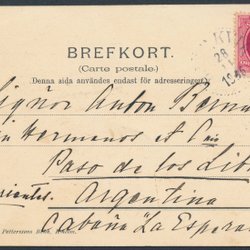 BREFKORT.
(Carte postale.)
Denna sida användes endast för adresseringen.
Signor Anton Berna
Hermanos et
Paso de los Lib
Argentina
Cabaña "La Espera
Petterssons